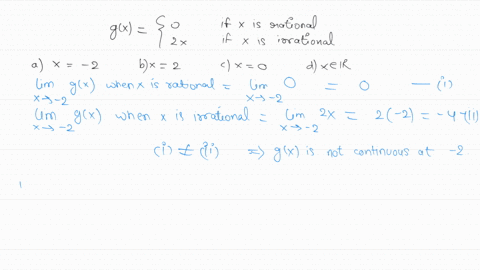 g(x) = { 0 if x is rational
2x if x is irrational
a) x = -2 b) x = 2 c) x = 0 d) x ∈ ℝ
lim x→-2 g(x) when x is rational = lim x→-2 0 = 0 — (i)
lim x→-2 g(x) when x is irrational = lim x→-2 2x = 2(-2) = -4 -(ii)
(i) ≠ (ii) => g(x) is not continuous at -2